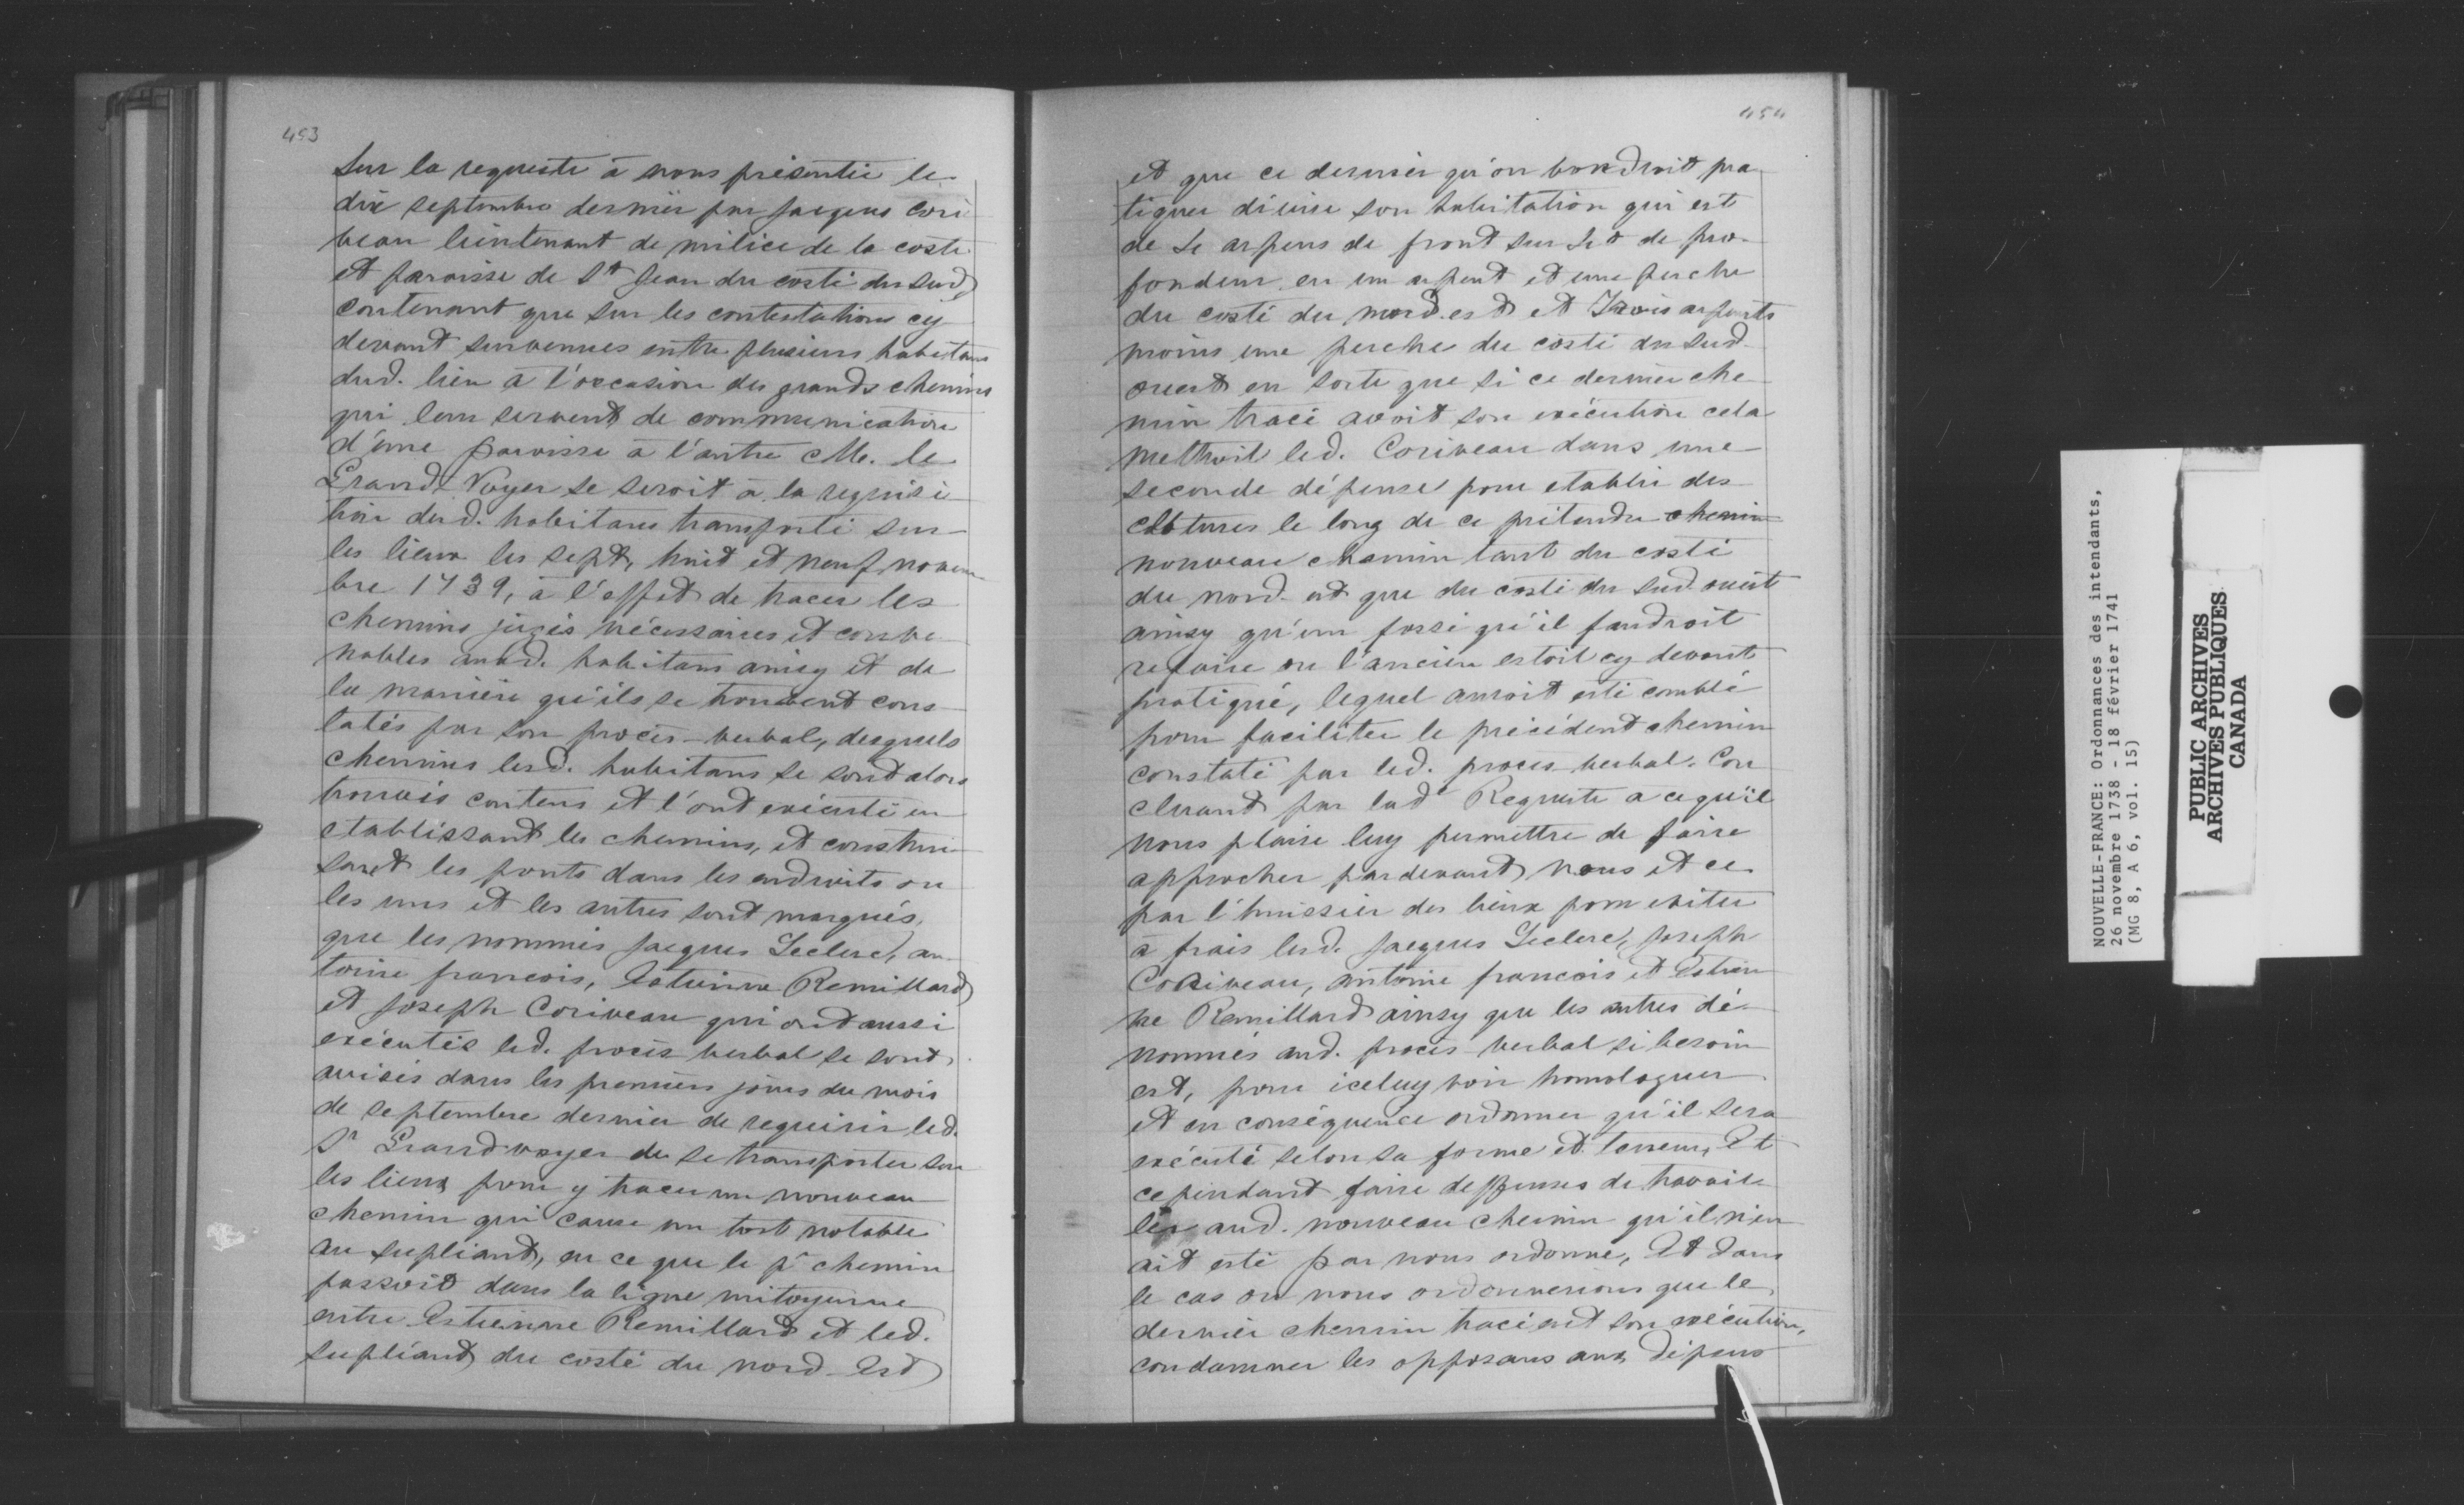 453
Sur la requeste à nous présentée le
dix septembre dernier par Jacques Cori
veau lieutenant de milice de la coste
et paroisse de St Jean du costé du sud,
contenant que sur les contestations cy
devant survenues entre plusieurs habitans
dud. lieu à l'occasion des grands chemins
qui leur servent de communication
d'une paroisse à l'autre Mr. le
Grand Voyer se seroit à la requisi
tion desd. habitans transporté sur
les lieux les sept, huit et neuf novem
bre 1739, à l'effet de tracer les
chemins jugés nécessaires et conve
nables auxd. habitans ainsy et de
la manière qu'ils se trouvent cons
tatés par son procès-verbal, desquels
chemins lesd. habitans se sont alors
trouvés contens et l'ont exécuté en
etablissant les chemins, et construi
sant les ponts dans les endroits ou
les uns et les autres sont marqués,
que les nommés Jacques Leclerc, an
toine francois, Estienne Remillard
et Joseph Coriveau qui ont aussi
exécutés led. procès verbal se sont
avisés dans les premiers jours du mois
de septembre dernier de requérir led.
Sr Grand voyer de se transporter sur
les lieux pour y tracer un nouveau
chemin qui cause un tort notable
au supliant, en ce que le pr chemin
passoit dans la ligne mitoyenne
entre Estienne Remillard et led.
supliant du costé du nord-Est
454
et que ce dernier qu'on voudroit pra
tiquer divise son habitation qui est
de 4 arpens de front sur 40 de pro
fondeur en un arpent et une perche
du costé du nord est et Trois arpents
moins une perche du costé du sud
ouest en sorte que si ce dernier che
min tracé avoit son exécution cela
mettroit led. Coriveau dans une
seconde dépense pour etablir des
clotures le long de ce prétendu chemin
nouveau chemin tant du costé
du nord-est que du costé du sud ouest
ainsy qu'un fossé qu'il faudroit
refaire ou l'ancien estoit cy devant
pratiqué, lequel auroit esté comblé
pour faciliter le précédent chemin
constaté par led. procès verbal. Con
cluant par lade Requeste a ce qu'il
nous plaise luy permettre de faire
approcher pardevant nous et ce
par l'huissier des lieux pour eviter
à frais lesd. Jacques Leclerc, Joseph
Coriveau, antoine francois et Estien
ne Remillard ainsy que les autres dé
nommés aud. procès-verbal si besoin
est, pour iceluy voir homologuer
et en conséquence ordonner qu'il sera
exécuté selon sa forme et teneur, Et
cependant faire deffenses de travail
ler aud. nouveau chemin qu'il n'en
ait esté par nous ordonné, Et dans
le cas ou nous ordonnerions que le
dernier chemin tracé eut son exécution,
condamner les opposans aux dépens
NOUVELLE-FRANCE: Ordonnances des intendants,
26 novembre 1738 - 18 février 1741
(MG 8, A 6, vol. 15)
PUBLIC ARCHIVES
ARCHIVES PUBLIQUES
CANADA